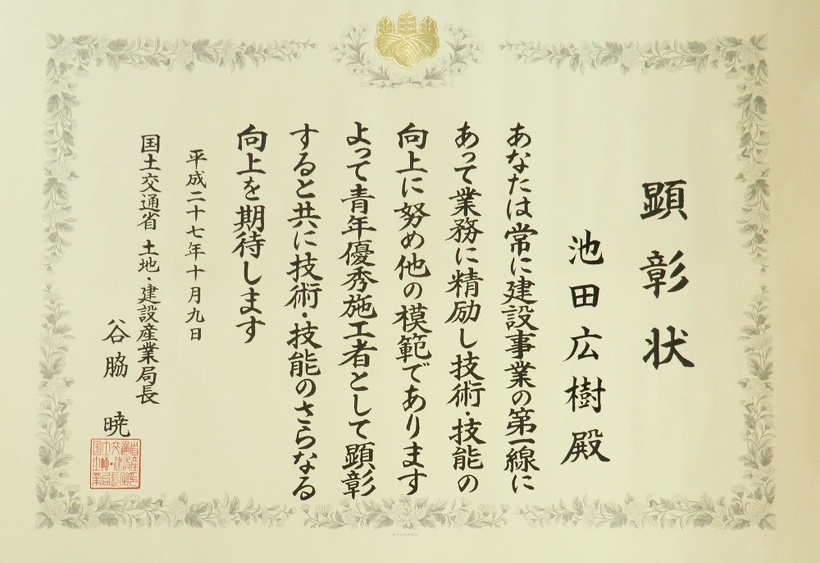 顕彰状
池田広樹殿
あなたは常に建設事業の第一線に
あって業務に精励し技術・技能の
向上に努め他の模範であります
よって青年優秀施工者として顕彰
すると共に技術・技能のさらなる
向上を期待します
平成二十七年十月九日
国土交通省 土地・建設産業局長
谷脇 暁